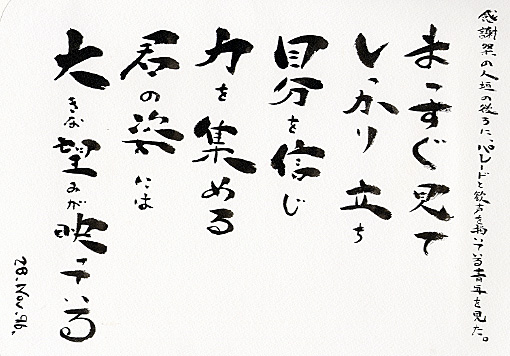 感謝祭の人垣の後ろに、パレードと歓声を聴いている青年を見た。
まっすぐ見て
しっかり立ち
自分を信じ
力を集める
君の姿には
大きな望みが映っている
28.Nov.96.